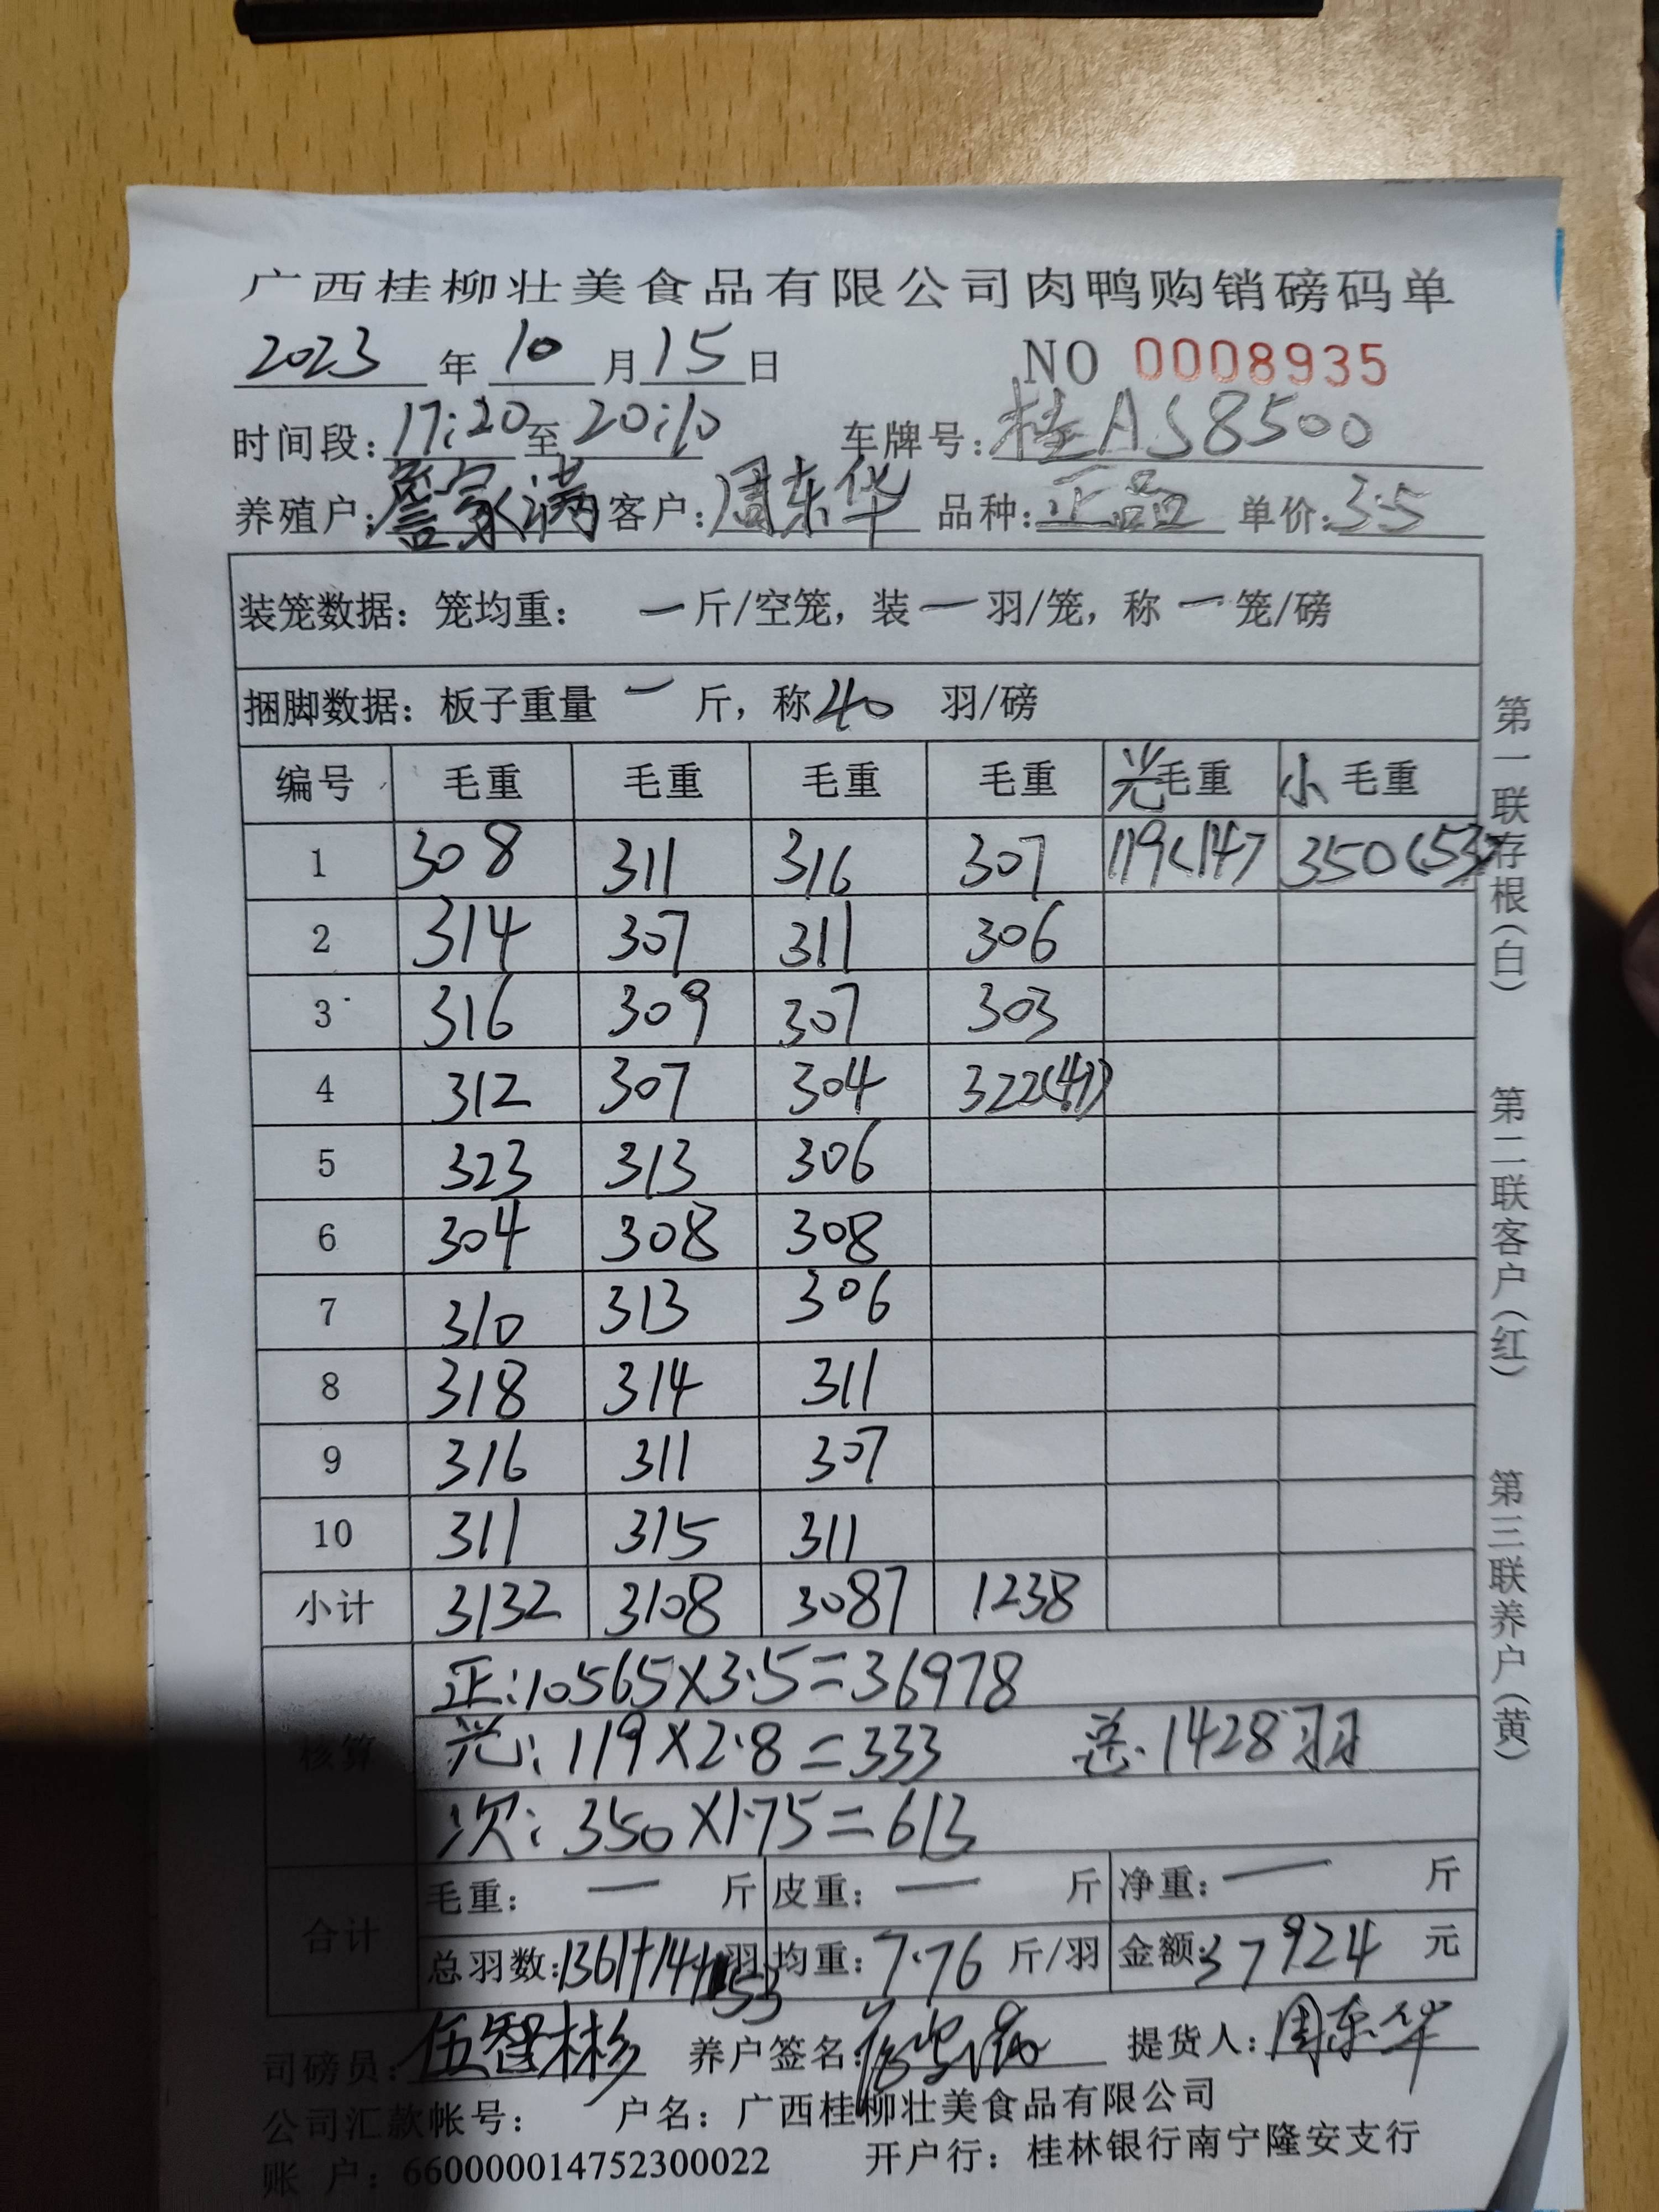 广西桂柳壮美食品有限公司肉鸭购销磅码单
2023 年 10 月 15 日 NO 0008935
时间段: 17:20 至 20:10 车牌号: 桂AS8500
养殖户: 詹家满 客户: 周东华 品种: 正品 单价: 3.5
装笼数据: 笼均重: 一 斤/空笼, 装 一 羽/笼, 称 一 笼/磅
捆脚数据: 板子重量 一 斤, 称 40 羽/磅
编号 毛重 毛重 毛重 毛重 光毛重 小毛重
1 308 311 316 307 119(14) 350(53)
2 314 307 311 306
3 316 309 307 303
4 312 307 304 322(41)
5 323 313 306
6 304 308 308
7 310 313 306
8 318 314 311
9 316 311 307
10 311 315 311
小计 3132 3108 3087 1238
核算
正:10565×3.5=36978
光:119×2.8=333 总.1428羽
次:350×1.75=613
合计
毛重: 一 斤 皮重: 一 斤 净重: 一 斤
总羽数:1361+14+53 羽 均重: 7.76 斤/羽 金额: 37924 元
司磅员: 伍智彬 养户签名: 提货人: 周东华
公司汇款帐号: 户名: 广西桂柳壮美食品有限公司
账 户: 660000014752300022 开户行: 桂林银行南宁隆安支行
第一联存根(白) 第二联客户(红) 第三联养户(黄)